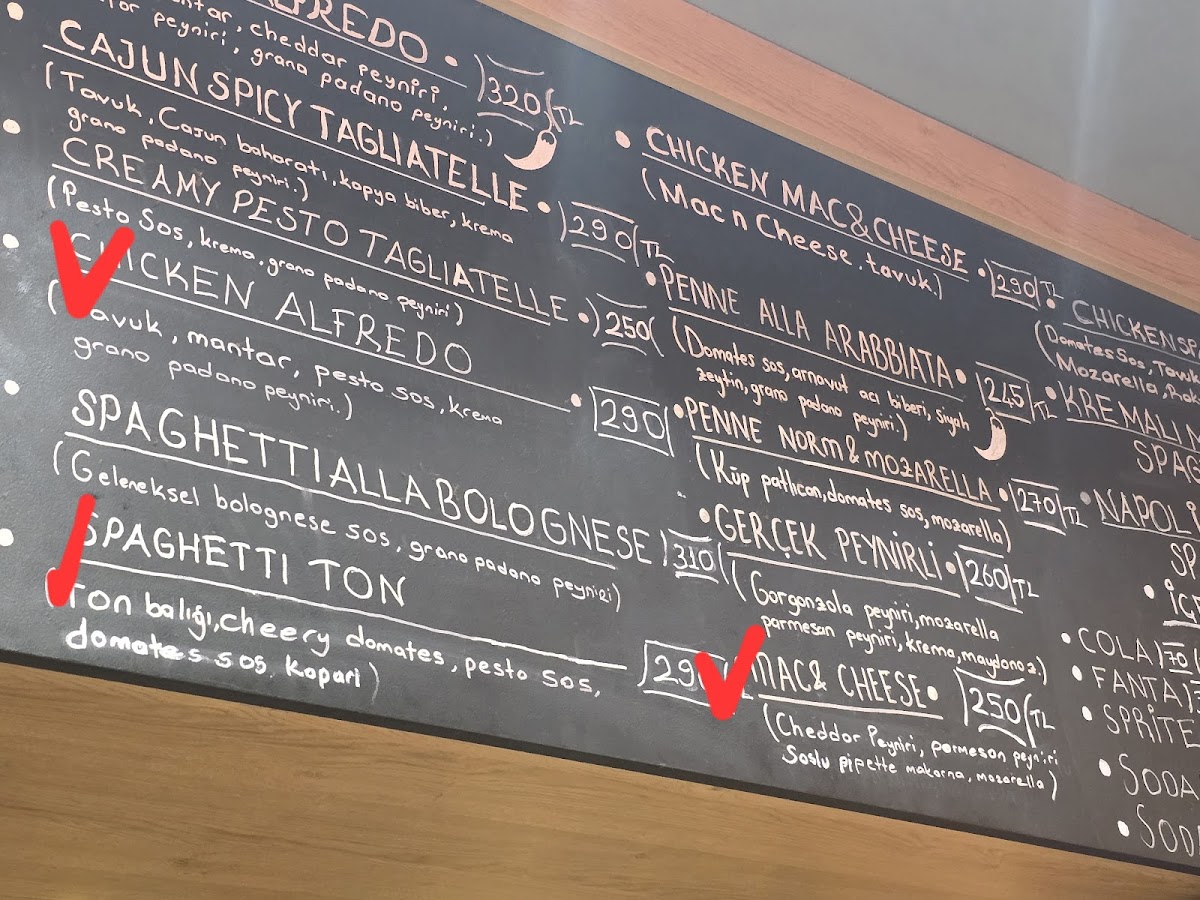 ALFREDO • 320 TL
mantar, cheddar peyniri,
peyniri, grano padano peyniri.)
CAJUN SPICY TAGLIATELLE • 290 TL
(Tavuk, Cajun baharatı, kapya biber, krema
grano padano peyniri.)
CREAMY PESTO TAGLIATELLE • 250
(Pesto Sos, krema, grano padano peyniri)
CHICKEN ALFREDO • 290
(Tavuk, mantar, pesto sos, krema
grano padano peyniri.)
SPAGHETTI ALLA BOLOGNESE 310
(Geleneksel bolognese sos, grano padano peyniri)
SPAGHETTI TON 290
(Ton balığı, cheery domates, pesto sos,
domates sos, kapari)
• CHICKEN MAC&CHEESE • 290 TL
(Mac n Cheese, tavuk.)
• PENNE ALLA ARABBIATA • 245 TL
(Domates sos, arnavut acı biberi, Siyah
zeytin, grano padano peyniri.)
• PENNE NORM & MOZARELLA • 270 TL
(Küp patlıcan, domates sos, mozarella)
• GERÇEK PEYNİRLİ • 260 TL
(Gorgonzola peyniri, mozarella
parmesan peyniri, krema, maydonoz)
MAC& CHEESE • 250 TL
(Cheddar Peyniri, parmesan peyniri
Soslu pipette makarna, mozarella)
• CHICKEN SP
(Domates Sos, Tavuk
Mozarella,
• KREMALI
SPAG
• NAPOL
SP
• İÇE
• COLA 70
• FANTA
• SPRITE
• SODA
• SODA